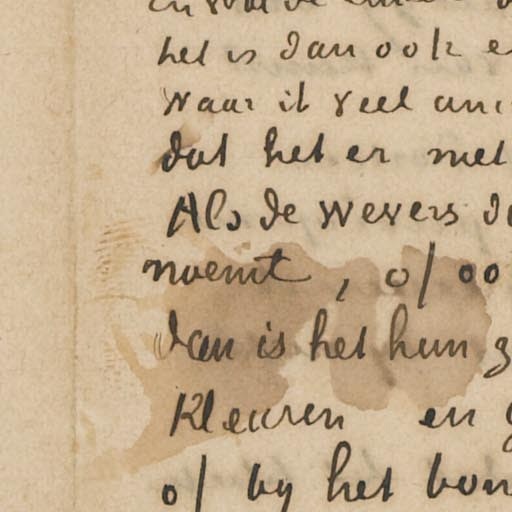 het is dan ook e
waar it veel an
dat het er met
Als de wevers d
noemt, of oo
dan is het hun g
Kleuren en g
of by het bon